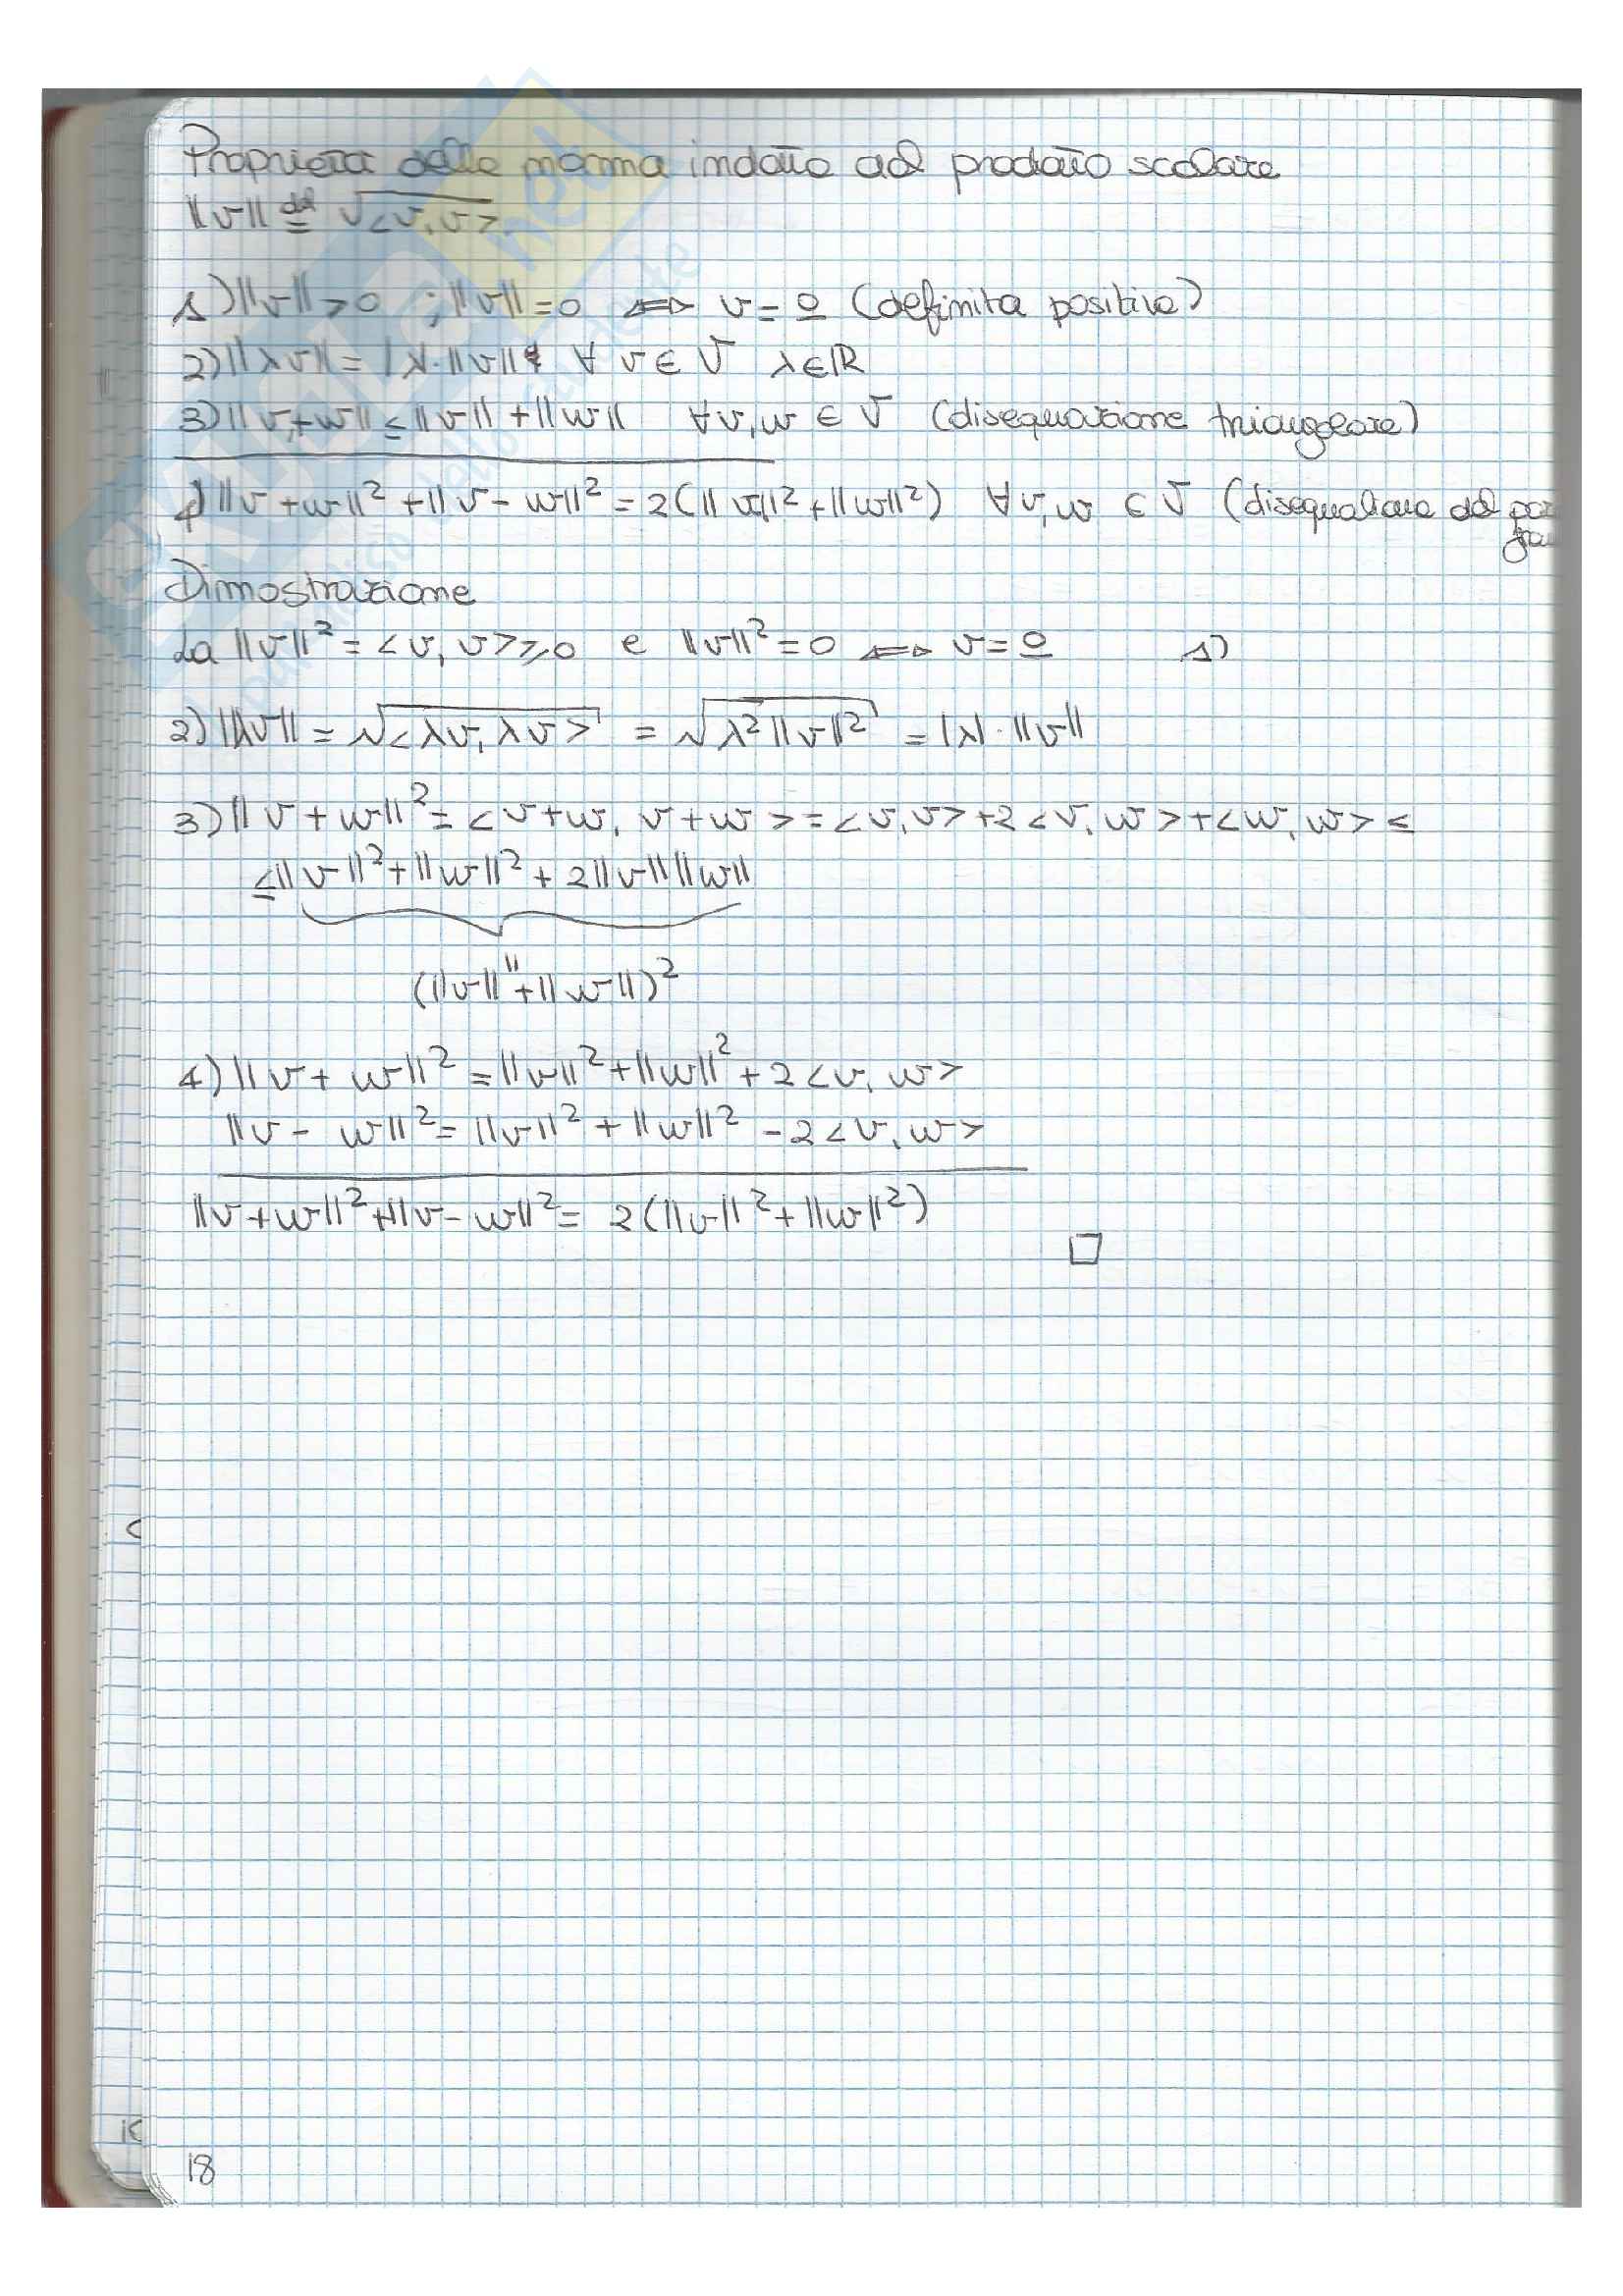 Proprietà della norma indotto dal prodotto scalare
||v|| def= √<v,v>
1) ||v||>0 ; ||v||=0 ⟺ v=0 (definita positiva)
2) ||λv|| = |λ|·||v|| ∀ v∈V λ∈R
3) ||v+w|| ≤ ||v|| + ||w|| ∀v,w ∈ V (disequazione triangolare)
4) ||v+w||² + ||v-w||² = 2(||v||²+||w||²) ∀v,w ∈ V
Dimostrazione
La ||v||² = <v,v> ≥ 0 e ||v||² = 0 ⟺ v=0 1)
2) ||λv|| = √<λv,λv> = √λ²||v||² = |λ|·||v||
3) ||v+w||² = <v+w, v+w> = <v,v>+2<v,w>+<w,w> ≤
≤ ||v||²+||w||²+2||v||||w||
"
(||v||+||w||)²
4) ||v+w||² = ||v||²+||w||²+2<v,w>
||v-w||² = ||v||²+||w||²-2<v,w>
||v+w||²+||v-w||² = 2(||v||²+||w||²)
18